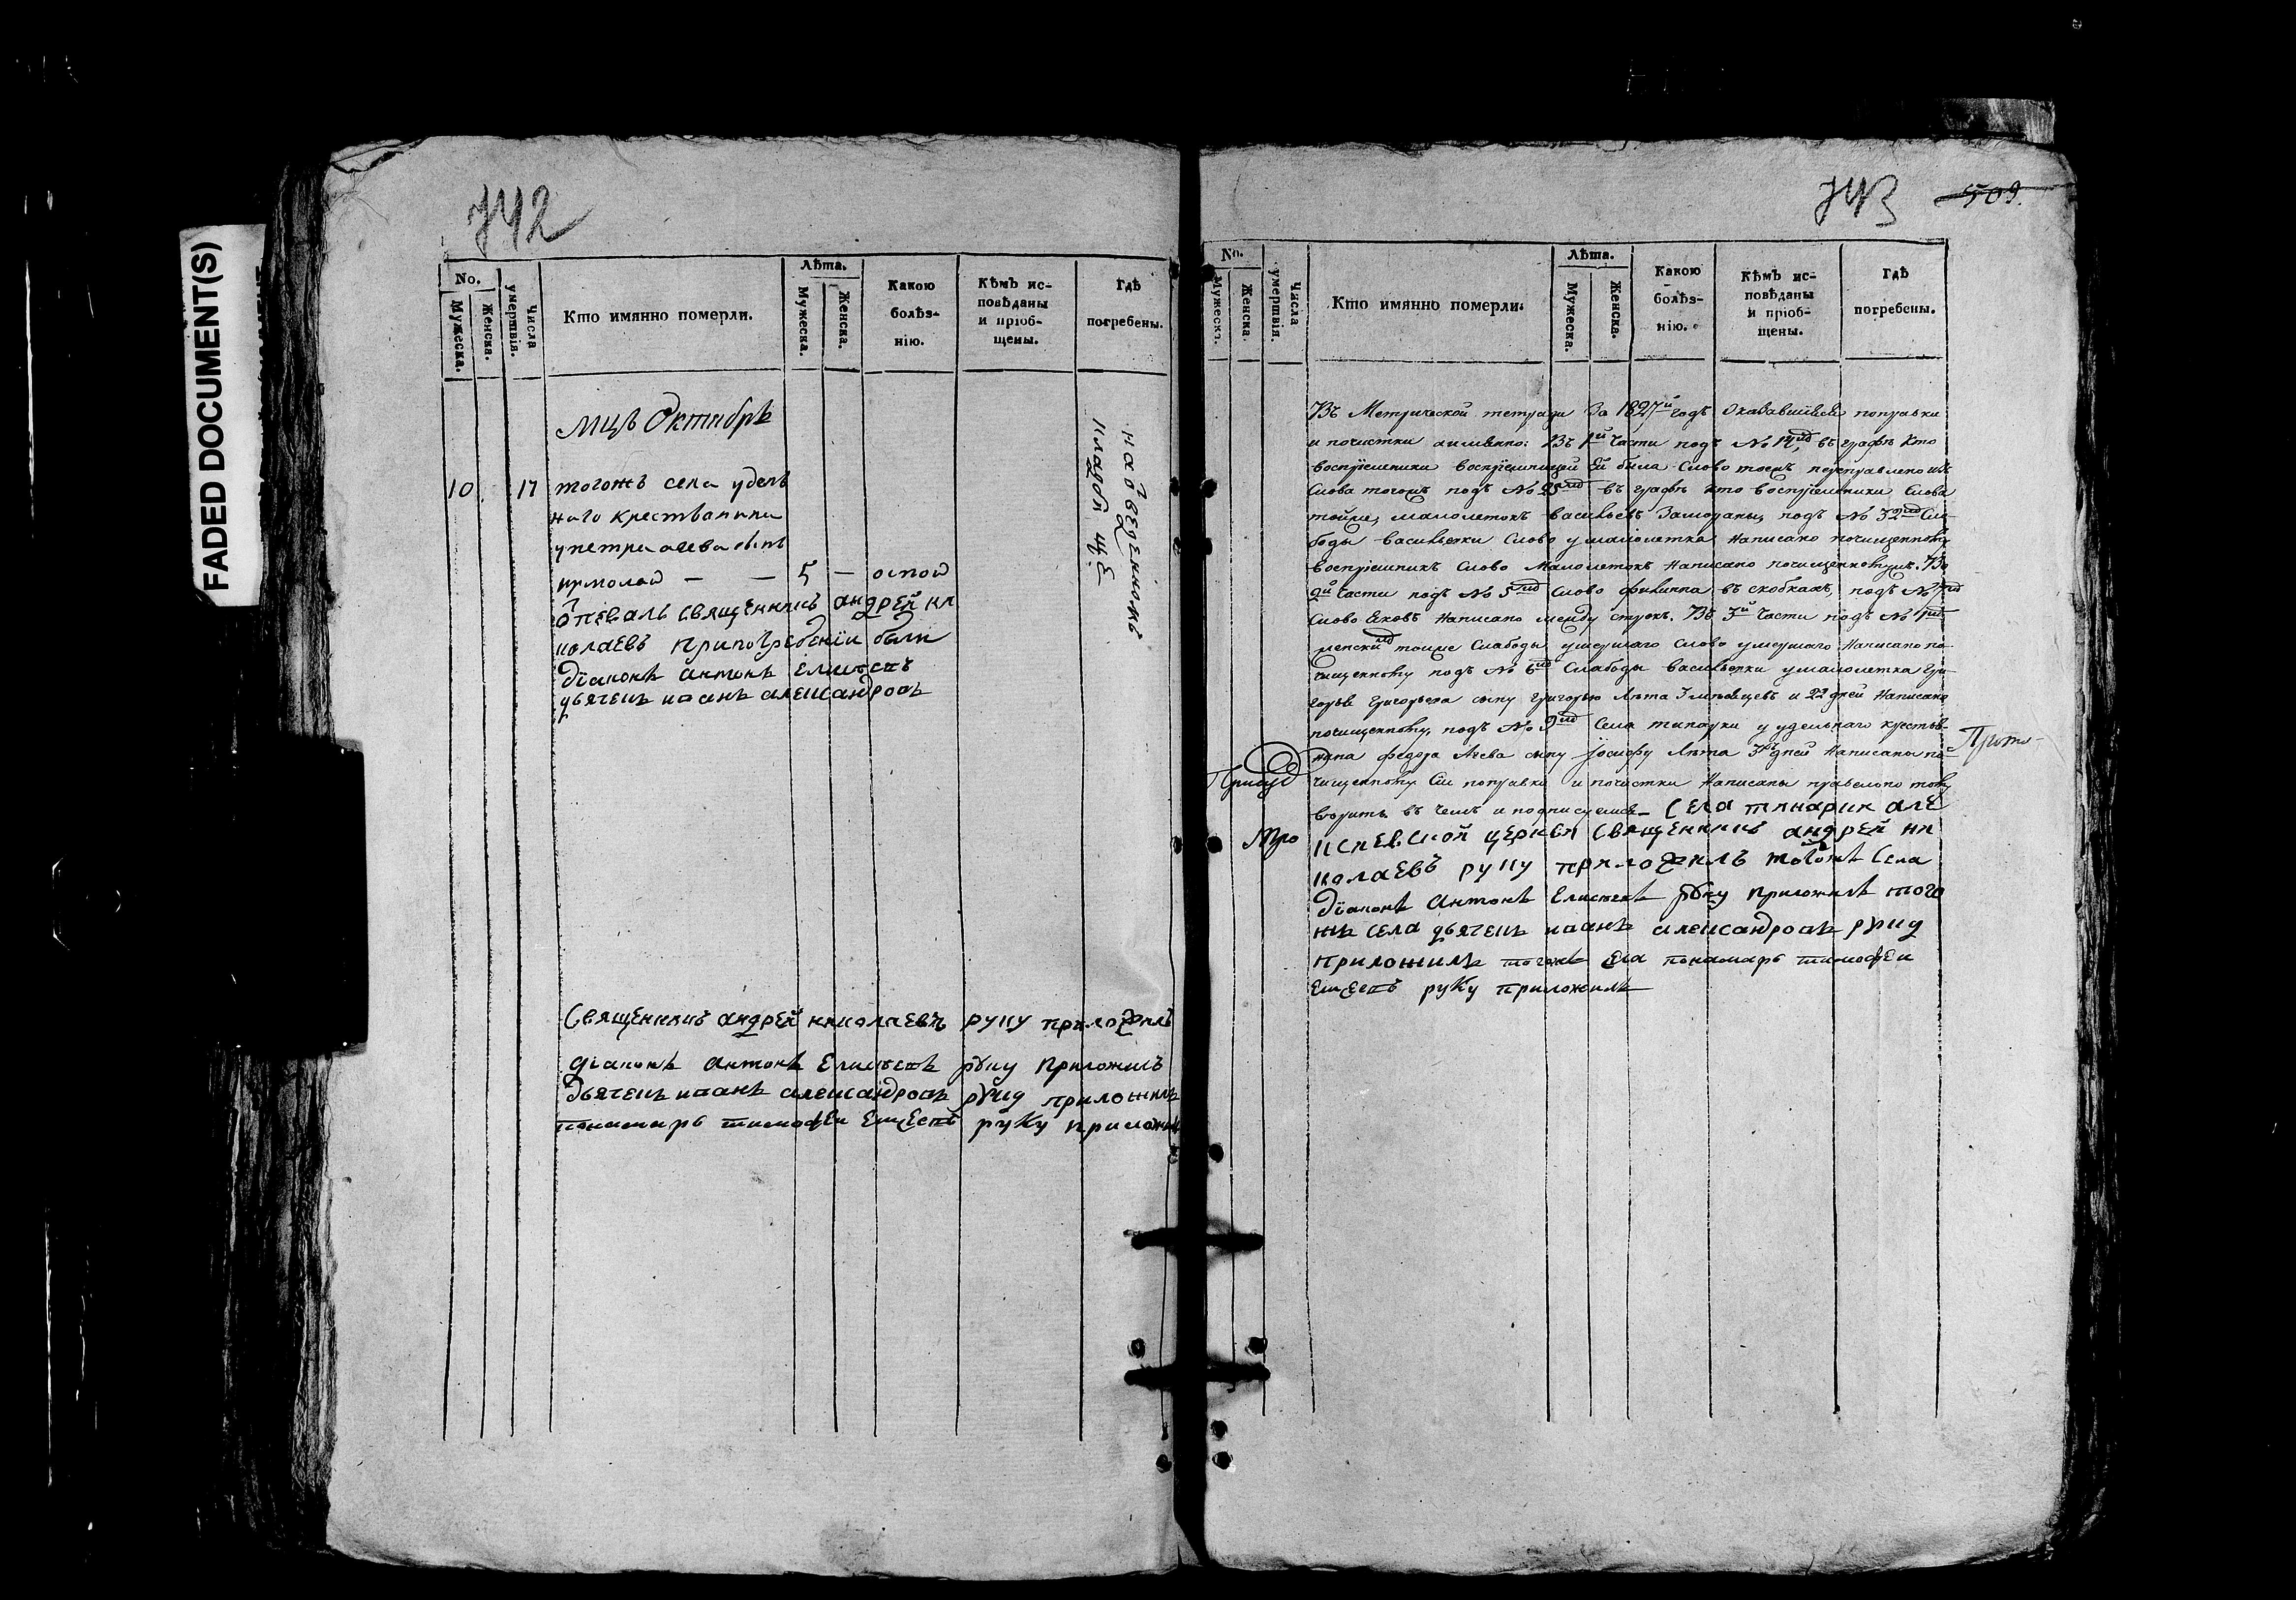 FADED DOCUMENT(S)
742
No.
Мужеска.
Женска.
Числа умертвія.
Кто имянно померли.
Лѣта.
Мужеска.
Женска.
Какою
болѣз-
нію.
Кѣмъ ис-
повѣданы
и пріоб-
щены.
Гдѣ
погребены.
мцъ Октябрь
10 17 тогожъ села удель
наго крестьянина
ермолай — — 5 — оспой
отпевалъ священникъ андрей ни
колаевъ при погребеніи были
діаконъ антонъ
дьячекъ иванъ александровъ
на отведенномъ
кладбищѣ
священникъ андрей николаевъ руку приложилъ
діаконъ антонъ руку приложилъ
дьячекъ иванъ александровъ руку приложилъ
пономарь тимофеи руку приложилъ
743 509.
No.
Мужеска.
Женска.
Числа умертвія.
Кто имянно померли.
Лѣта.
Мужеска.
Женска.
Какою
болѣз-
нію.
Кѣмъ ис-
повѣданы
и пріоб-
щены.
Гдѣ
погребены.
Въ Метрической тетради за 1827й годъ оказавшіися поправки
и почистки а именно: Въ 1й части подъ № 14мъ, въ графѣ кто
воспріемники воспріемницей ей была слово тоежъ переправлено изъ
слова тогожъ подъ № 25мъ въ графѣ кто воспріемники слова
малолетокъ васильевъ подъ № 32мъ Сло-
боды васильевки слово у малолетка написано почищенному
воспріемникъ слово малолетокъ написано почищенному. Во
2й части подъ № 5мъ слово филиппа въ скобкахъ, подъ № 7мъ
слово Яковъ написано между строкъ. Въ 3й части подъ № 1мъ
тоиже слабоды слово умершаго написано по-
чищенному подъ № 6мъ слабоды васильевки у малолетка гри-
горья григорьева сыну григорью лѣта месяцевъ и 22 дней написано
почищенному, подъ № 9мъ села у удельнаго крестья-
нина федора сыну Іосифу лѣта дней написаны по-
чищенному сіи поправки и почистки написаны
верить въ чемъ и подписуемся — села
церкви священникъ андрей ни
колаевъ руку приложилъ тогожъ села
діаконъ антонъ руку приложилъ того
жъ села дьячекъ иванъ александровъ руку
приложилъ тогожъ села пономарь тимофеи
руку приложилъ
Про
Прото-